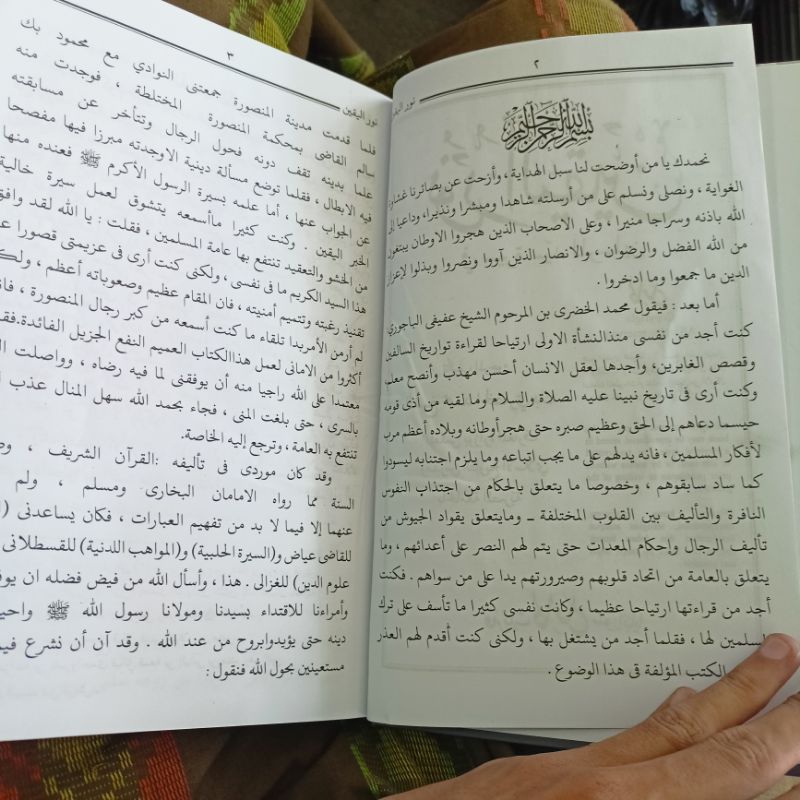 ٢
نور اليق
بسم الله الرحمن الرحيم
نحمدك يا من أوضحت لنا سبل الهداية ، وأزحت عن بصائرنا غشاوة
الغواية ، ونصلى ونسلم على من أرسلته شاهدا ومبشرا ونذيرا، وداعيا الى
الله باذنه وسراجا منيرا ، وعلى الاصحاب الذين هجروا الاوطان يبتغون
من الله الفضل والرضوان ، والانصار الذين آووا ونصروا وبذلوا لإعزاز
الدين ما جمعوا وما ادخروا .
أما بعد : فيقول محمد الخضرى بن المرحوم الشيخ عفيفى الباجورى
كنت أجد من نفسى منذالنشأة الاولى ارتياحا لقراءة تواريخ السالفين
وقصص الغابرين، وأجدها لعقل الانسان أحسن مهذب وأنصح معلم
وكنت أرى فى تاريخ نبينا عليه الصلاة والسلام وما لقيه من أذى قومه
حيسما دعاهم إلى الحق وعظيم صبره حتى هجر أوطانه وبلاده أعظم مرب
لأفكار المسلمين ، فانه يدلهم على ما يجب اتباعه وما يلزم اجتنابه ليسودوا
كما ساد سابقوهم ، وخصوصا ما يتعلق بالحكام من اجتذاب النفوس
النافرة والتأليف بين القلوب المختلفة ــ ومايتعلق بقواد الجيوش من
تأليف الرجال وإحكام المعدات حتى يتم لهم النصر على أعدائهم ، وما
يتعلق بالعامة من اتحاد قلوبهم وصيرورتهم يدا على من سواهم . فكنت
أجد من قراءتها ارتياحا عظيما ، وكانت نفسى كثيرا ما تأسف على ترك
لسلمين لها ، فقلما أجد من يشتغل بها ، ولكنى كنت أقدم لهم العذر
الكتب المؤلفة فى هذا الوضوع .
٣
نور اليقين
فلما قدمت مدينة المنصورة جمعتنى النوادي مع محمود بك
سالم القاضى بمحكمة المنصورة المختلطة ، فوجدت منه
علما بدينه تقف دونه فحول الرجال وتتأخر عن مسابقته
فيه الابطال ، فقلما توضع مسألة دينية الاوجدته مبرزا فيها مفصحا
عن الجواب عنها ، أما علمه بسيرة الرسول الأكرم ﷺ فعنده منها
الخبر اليقين . وكنت كثيرا ماأسمعه يتشوق لعمل سيرة خالية
من الحشو والتعقيد تنتفع بها عامة المسلمين ، فقلت : يا الله لقد وافق
هذا السيد الكريم ما فى نفسى ، ولكنى كنت أرى فى عزيمتى قصورا
تقنيذ رغبته وتتميم أمنيته ، فان المقام عظيم وصعوباته أعظم ، ولك
لم أرمن الأمربدا تلقاء ما كنت أسمعه من كبر رجال المنصورة ، فان
أكثروا من الامانى لعمل هذاالكتاب العميم النفع الجزيل الفائدة.فق
معتمدا على الله راجيا منه أن يوفقنى لما فيه رضاه ، وواصلت ال
بالسرى ، حتى بلغت المنى ، فجاء بحمد الله سهل المنال عذب
تنتفع به العامة ، وترجع إليه الخاصة.
وقد كان موردى فى تأليفه :القرآن الشريف ، وص
السنة مما رواه الامامان البخارى ومسلم ، ولم
عنهما إلا فيما لا بد من تفهيم العبارات ، فكان يساعدنى
للقاضى عياض و(السيرة الحلبية) و(المواهب اللدنية) للقسطلانى
علوم الدين) للغزالى . هذا ، وأسأل الله من فيض فضله ان يوف
وأمراءنا للاقتداء بسيدنا ومولانا رسول الله ﷺ واحي
دينه حتى يؤيدوابروح من عند الله . وقد آن أن نشرع فيم
مستعينين بحول الله فنقول :